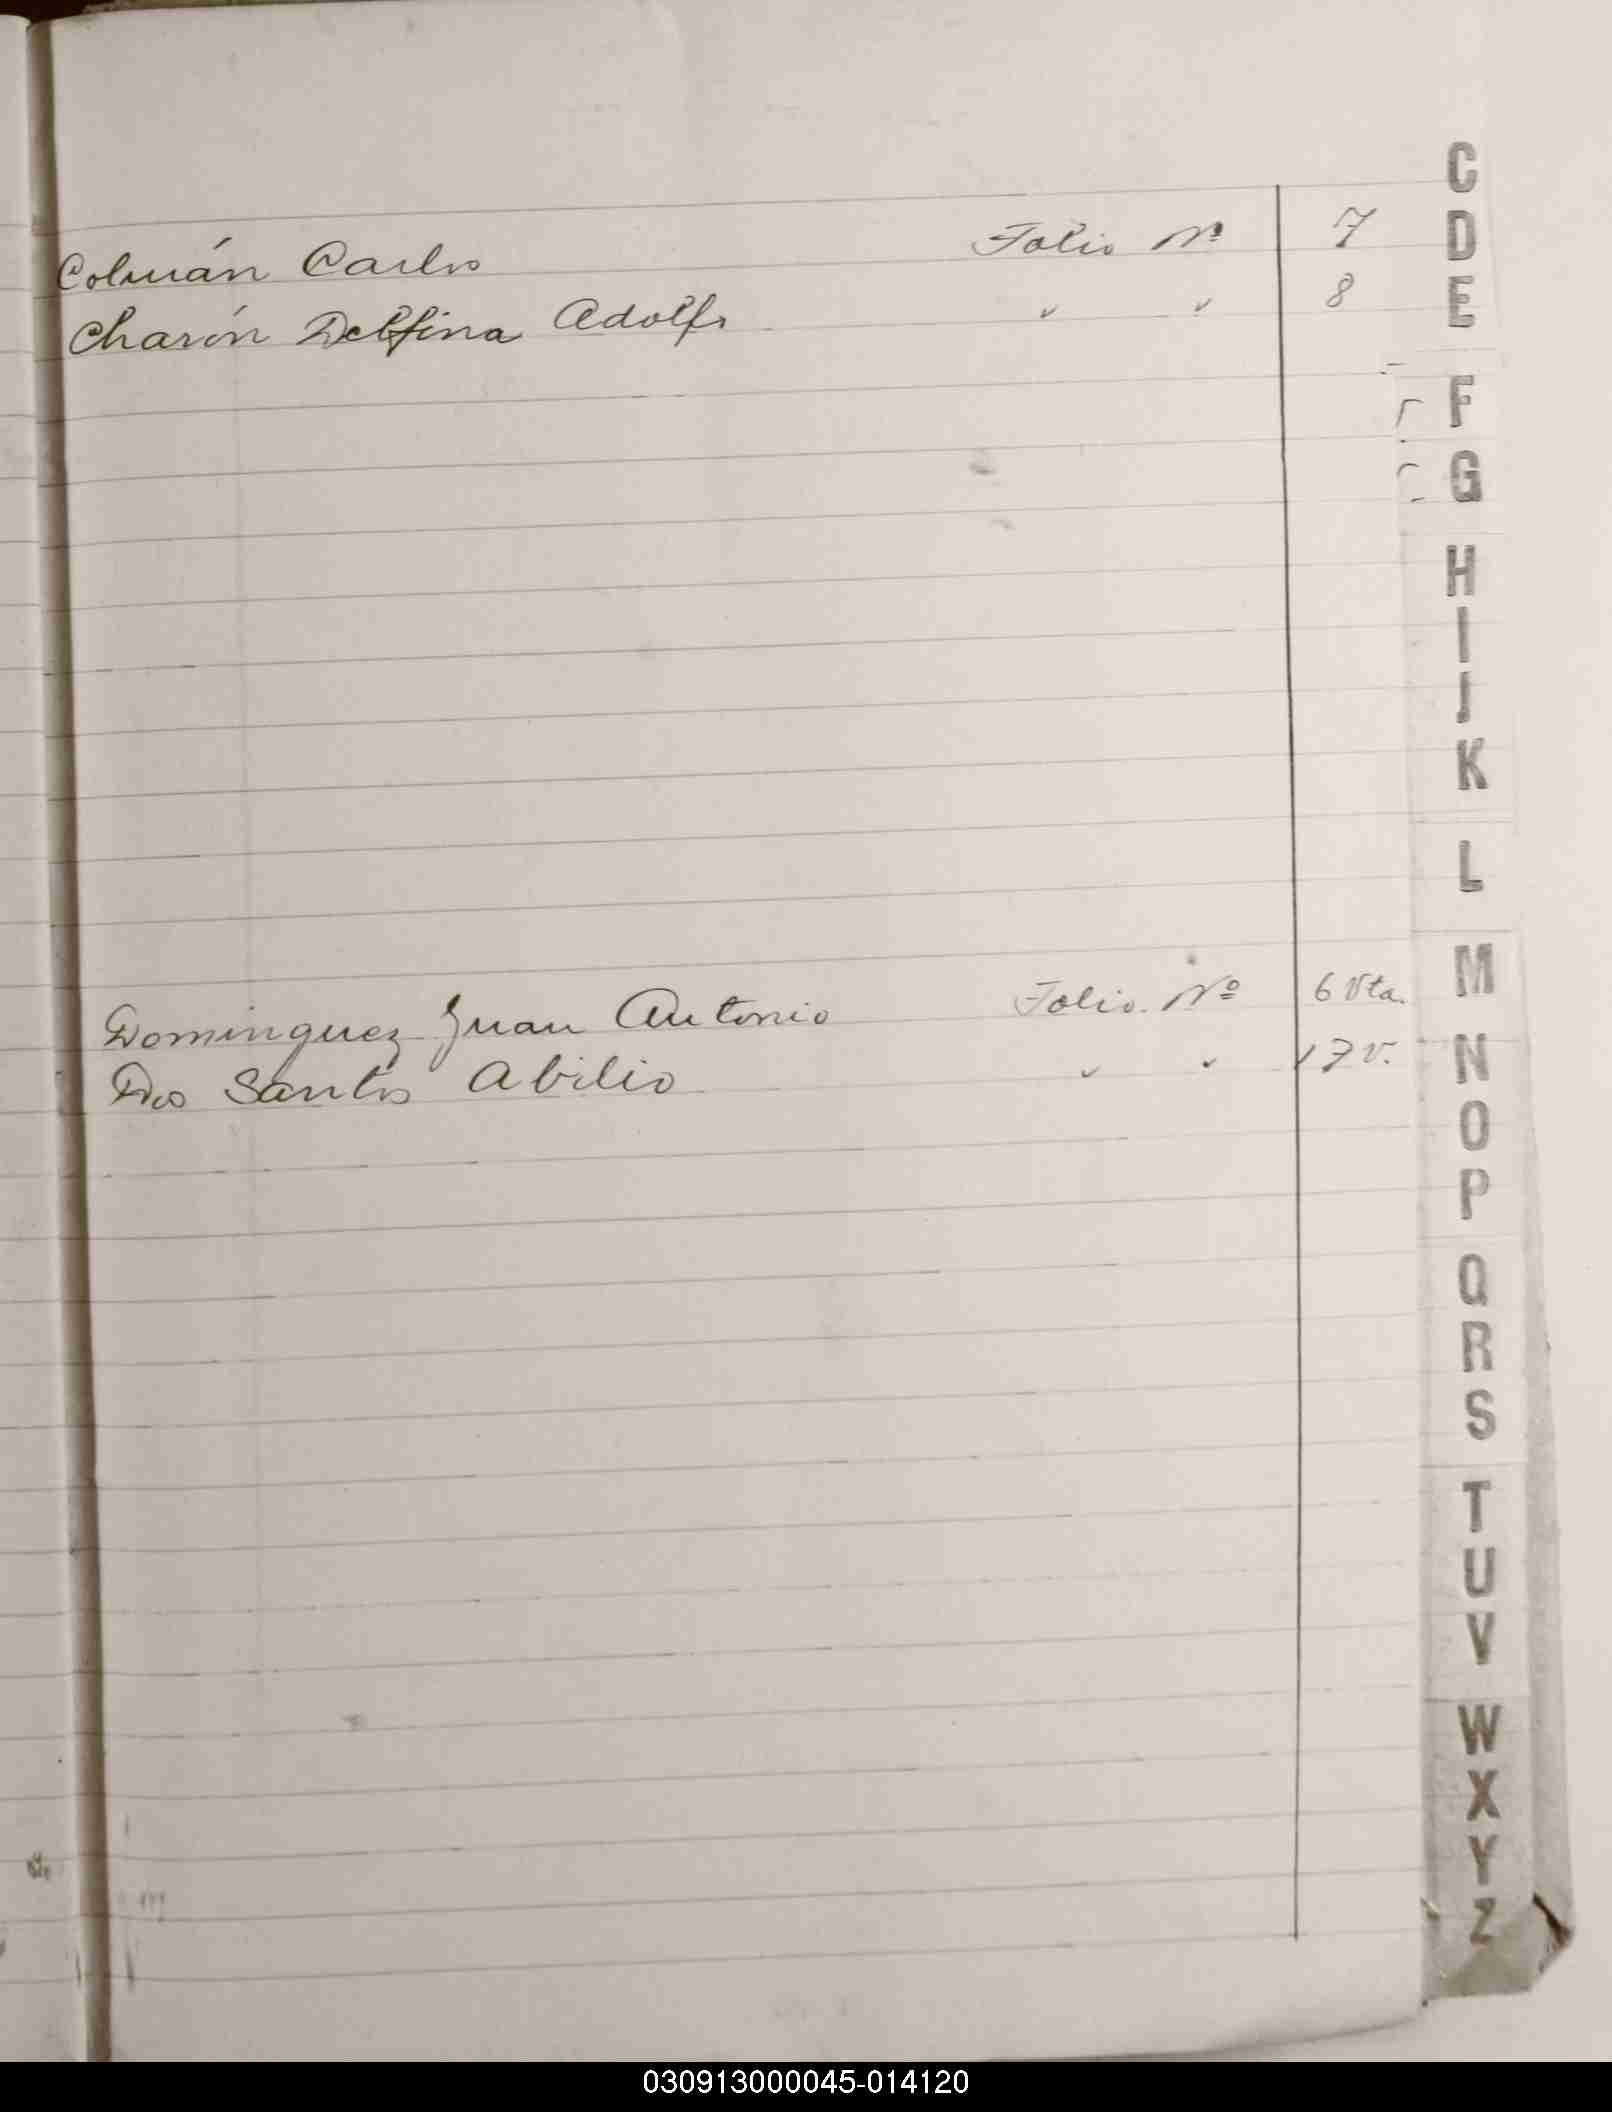 Colmán Carlos Folio Nº 7
Charón Delfina Adolfo " " 8
Dominguez Juan Antonio Folio Nº 6 Vta.
Dos Santos Abilio " " 17 v.
C
D
E
F
G
H
I
J
K
L
M
N
O
P
Q
R
S
T
U
V
W
X
Y
Z
030913000045-014120